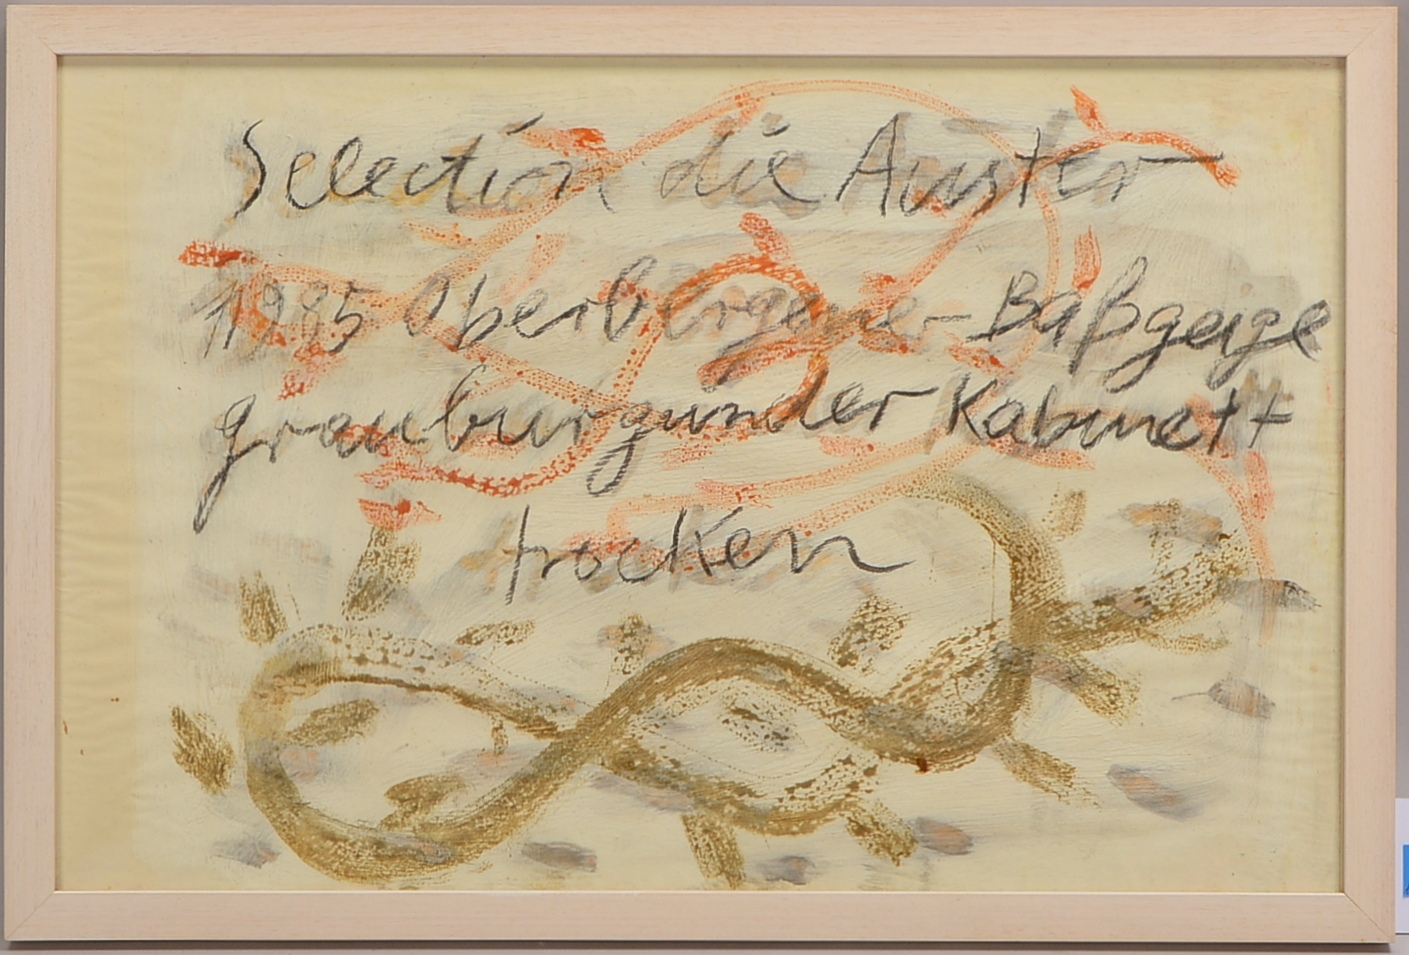 Selection die Auster
1985 Oberbergener Baßgeige
grauburgunder Kabinett
trocken